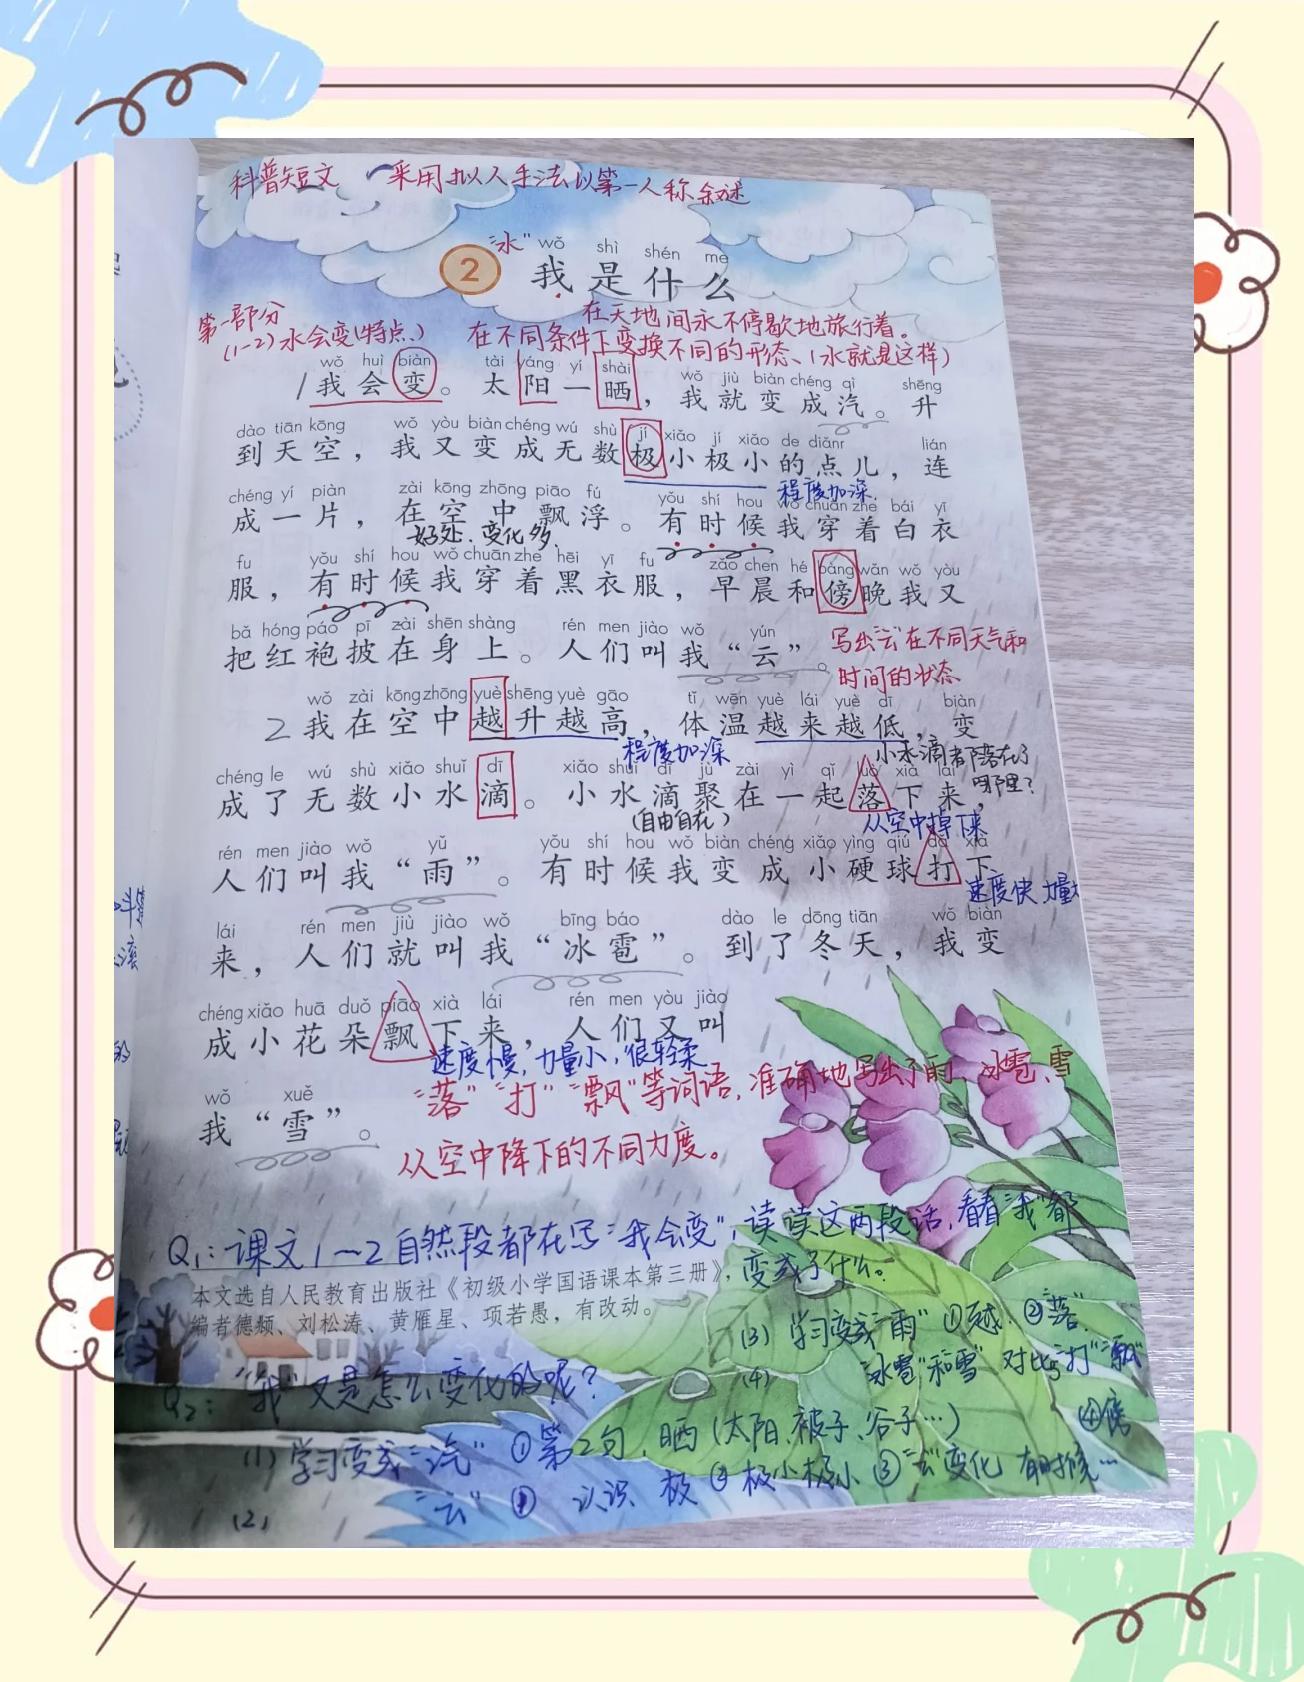 科普短文 采用拟人手法以第一人称叙述
"水" wǒ shì shén me
2 我是什么
第一部分
(1-2)水会变(特点)
在天地间永不停歇地旅行着。
在不同条件下变换不同的形态、(水就是这样)
wǒ huì biàn tài yáng yí shài wǒ jiù biàn chéng qì shēng
1 我会变。太阳一晒，我就变成汽。升
dào tiān kōng wǒ yòu biàn chéng wú shù jí xiǎo jí xiǎo de diǎnr lián
到天空，我又变成无数极小极小的点儿，连
程度加深.
chéng yí piàn zài kōng zhōng piāo fú yǒu shí hou wǒ chuān zhe bái yī
成一片，在空中飘浮。有时候我穿着白衣
好处.变化多.
fu yǒu shí hou wǒ chuān zhe hēi yī fu zǎo chen hé bàng wǎn wǒ yòu
服，有时候我穿着黑衣服，早晨和傍晚我又
bǎ hóng páo pī zài shēn shàng rén men jiào wǒ yún
把红袍披在身上。人们叫我"云"。
写出"云"在不同天气和
时间的状态
wǒ zài kōng zhōng yuè shēng yuè gāo tǐ wēn yuè lái yuè dī biàn
2 我在空中越升越高，体温越来越低，变
程度加深
小水滴都落在了
哪里？
chéng le wú shù xiǎo shuǐ dī xiǎo shuǐ dī jù zài yì qǐ luò xià lái
成了无数小水滴。小水滴聚在一起落下来，
(自由自在)
从空中掉下来
rén men jiào wǒ yǔ yǒu shí hou wǒ biàn chéng xiǎo yìng qiú dǎ xià
人们叫我"雨"。有时候我变成小硬球打下
速度快,力量大
lái rén men jiù jiào wǒ bīng báo dào le dōng tiān wǒ biàn
来，人们就叫我"冰雹"。到了冬天，我变
chéng xiǎo huā duǒ piāo xià lái rén men yòu jiào
成小花朵飘下来，人们又叫
速度慢,力量小,很轻柔
wǒ xuě
我"雪"。
"落""打""飘"等词语,准确地写出了雨、冰雹、雪
从空中降下的不同力度。
Q1:课文1～2自然段都在写"我会变",读读这两段话,看看"我"都
变成了什么。
本文选自人民教育出版社《初级小学国语课本第三册》，
编者德颊、刘松涛、黄雁星、项若愚，有改动。
Q2: "我"又是怎么变化的呢?
(3) 学习变成"雨" ①越. ②"落".
(4) "冰雹"和"雪" 对比"打""飘"
(1) 学习变成"汽" ①第2句,晒(太阳、被子、谷子…)
④傍
(2) "云" ① 认识 极 ② 极小极小 ③"云"变化